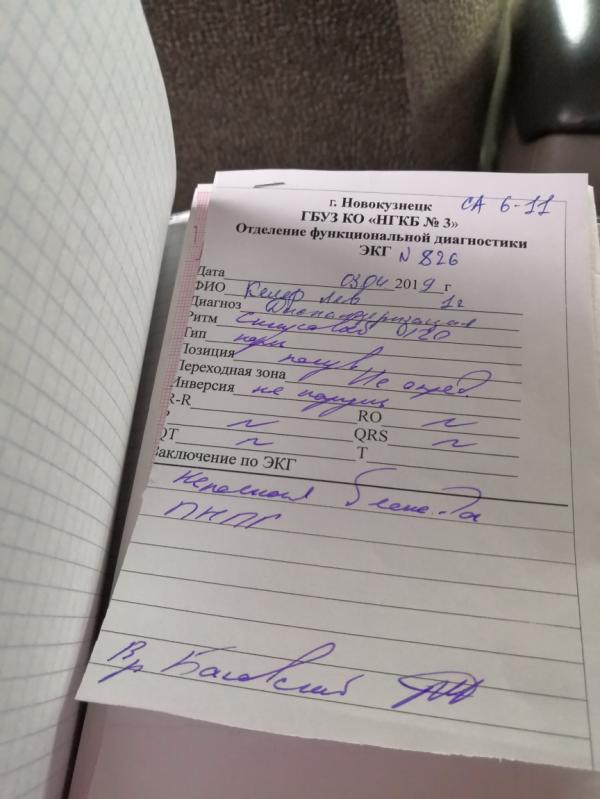 г. Новокузнецк СА 6-11
ГБУЗ КО «НГКБ № 3»
Отделение функциональной диагностики
ЭКГ N 826
Дата 03.04 2019 г
ФИО Келер Лев 1г
Диагноз Диспансеризация
Ритм Синусовый 120
Тип норм
Позиция полув
Переходная зона Не опред.
Инверсия не наруш
R-R RO ~
P ~ QRS ~
QT ~ T
Заключение по ЭКГ
Неполная блокада
ПНПГ
Вр